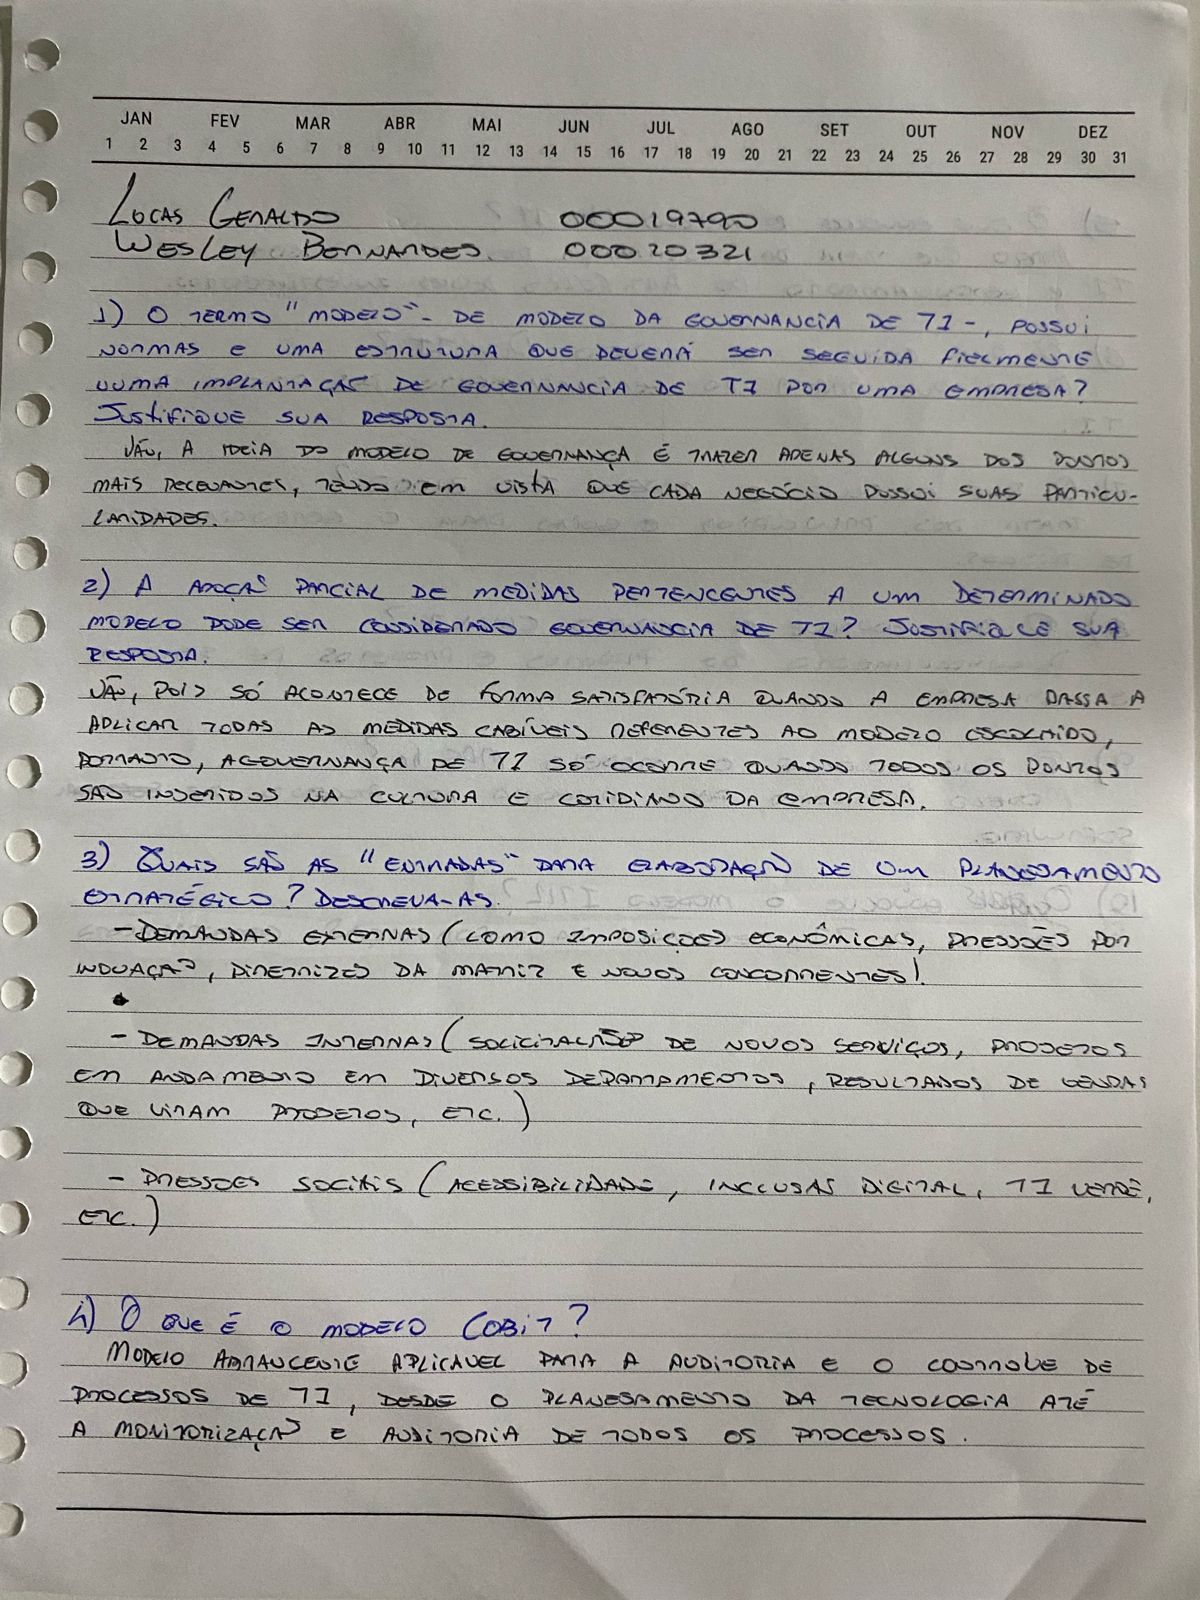 JAN FEV MAR ABR MAI JUN JUL AGO SET OUT NOV DEZ
1 2 3 4 5 6 7 8 9 10 11 12 13 14 15 16 17 18 19 20 21 22 23 24 25 26 27 28 29 30 31
Lucas Geraldo 00019790
Wesley Bernardes 00020321
1) O termo "modelo" - de modelo da governancia de TI -, possui
normas e uma estrutura que deverá ser seguida fielmente
numa implantação de governancia de TI por uma empresa?
Justifique sua resposta.
Não, a ideia do modelo de governança é trazer apenas alguns dos pontos
mais relevantes, tendo em vista que cada negócio possui suas particu-
laridades.
2) A adoção parcial de medidas pertencentes a um determinado
modelo pode ser considerado governancia de TI? Justifique sua
resposta.
Não, pois só acontece de forma satisfatória quando a empresa passa a
aplicar todas as medidas cabíveis referentes ao modelo escolhido,
portanto, a governança de TI só ocorre quando todos os pontos
são inseridos na cultura e cotidiano da empresa.
3) Quais são as "entradas" para elaboração de um planejamento
estratégico? Descreva-as.
- Demandas externas (como imposições econômicas, pressões por
inovação, diretrizes da matriz e novos concorrentes)
- Demandas internas (solicitação de novos serviços, projetos
em andamento em diversos departamentos, resultados de vendas
que viram projetos, etc.)
- Pressoes sociais (acessibilidade, inclusão digital, TI verde,
etc.)
4) O que é o modelo Cobit?
Modelo abrangente aplicavel para a auditoria e o controle de
processos de TI, desde o planejamento da tecnologia até
a monitorização e auditoria de todos os processos.